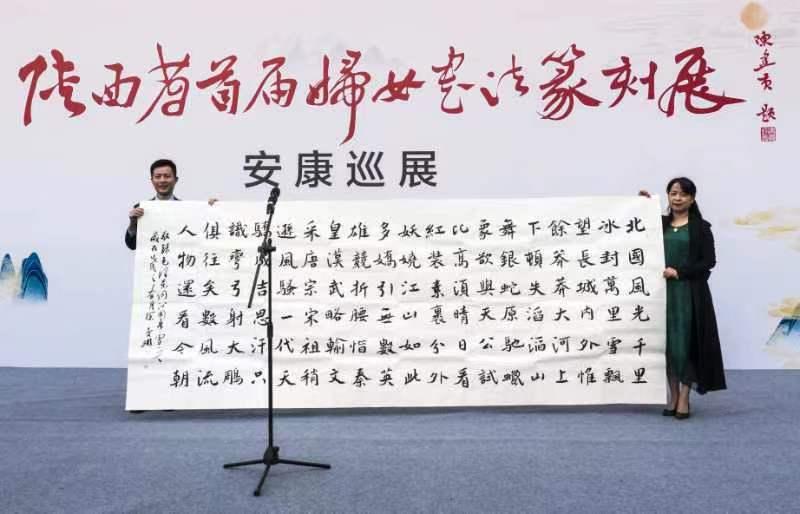 陕西省首届婦女书法篆刻展
陳建貢 題
安康巡展
北國風光千里
冰封萬里雪飄
望長城內外惟
餘莽莽大河上
下頓失滔滔山
舞銀蛇原馳蠟
象欲與天公試
比高須晴日看
紅裝素裹分外
妖嬈江山如此
多嬌引無數英
雄競折腰惜秦
皇漢武略輸文
采唐宗宋祖稍
遜風騷一代天
驕成吉思汗只
識彎弓射大鵰
俱往矣數風流
人物還看今朝